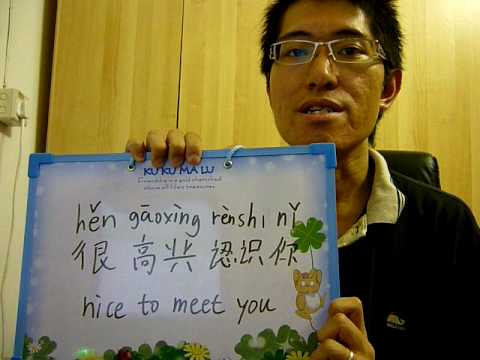 KUKU MA LU
Friendship is a cherished
above all life's treasures
hěn gāoxìng rènshi nǐ
很 高 兴 认识 你
nice to meet you